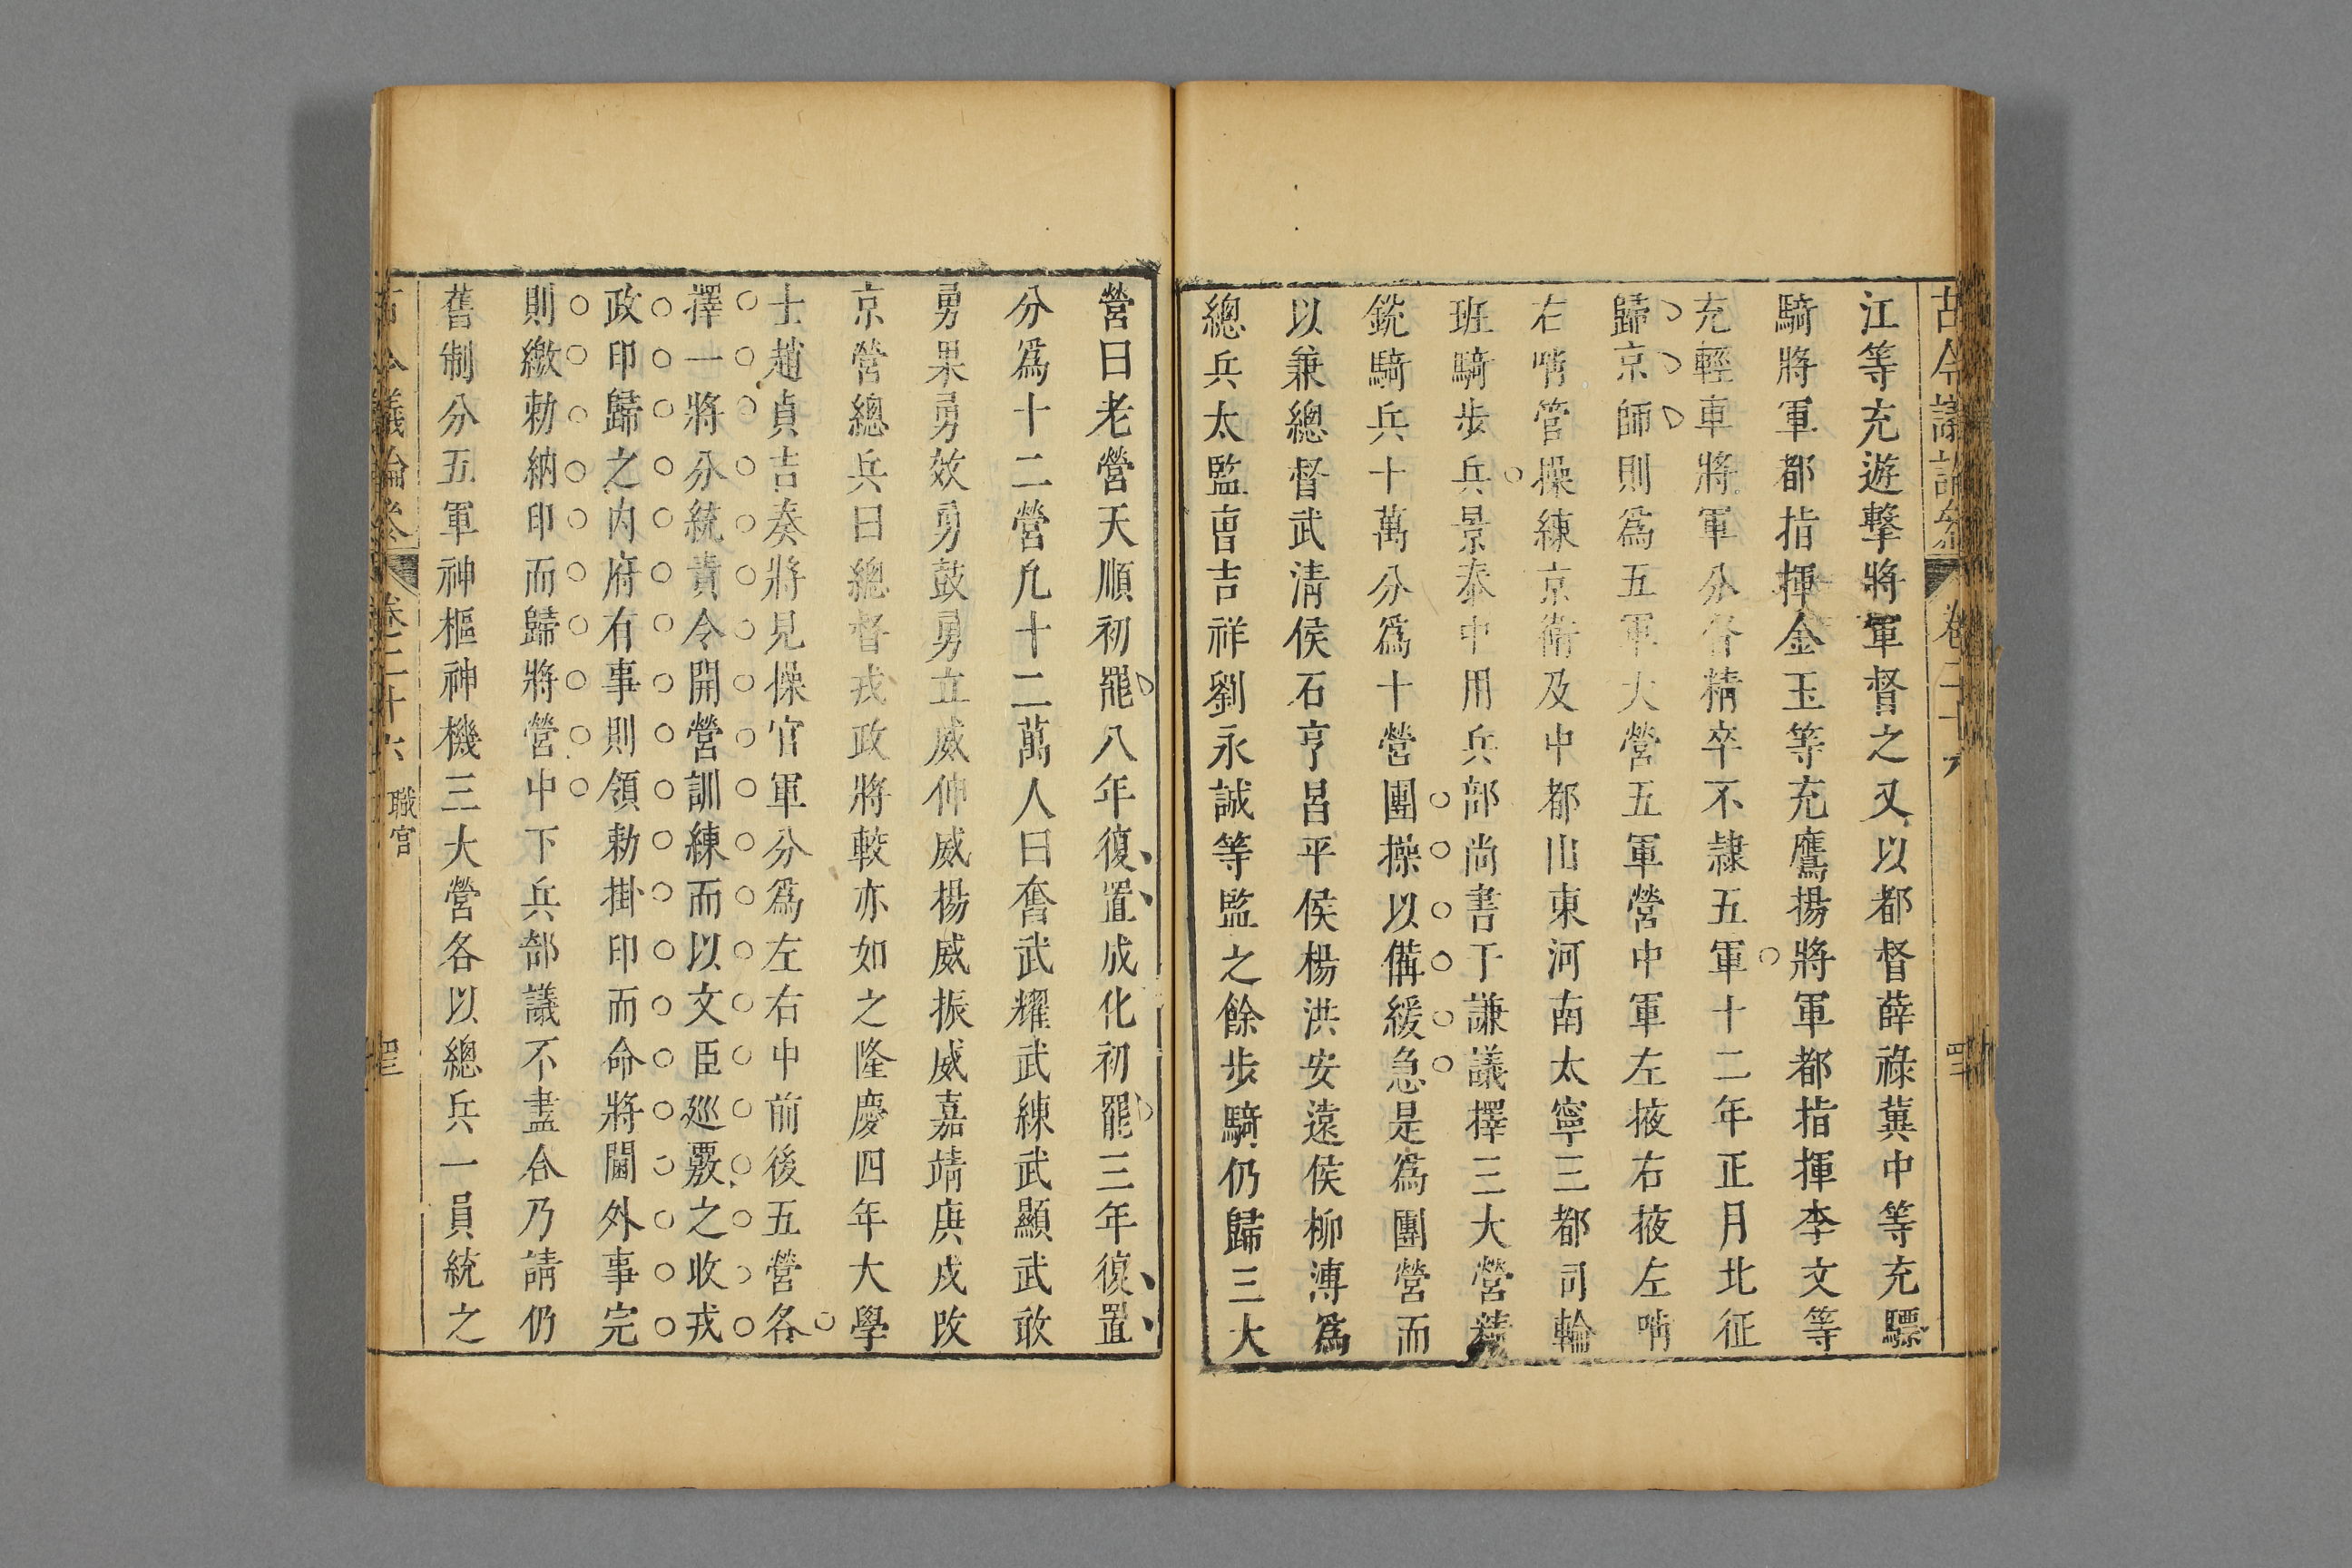 古今議論參 卷二十六
江等充遊擊將軍督之又以都督薛祿冀中等充驃
騎將軍都指揮金玉等充鷹揚將軍都指揮李文等
充輕車將軍分各精卒不隷五軍十二年正月北征
歸京師則為五軍大營五軍營中軍左掖右掖左哨
右哨管操練京衛及中都山東河南太寧三都司輪
班騎步兵景泰中用兵部尚書于謙議擇三大營精
銳騎兵十萬分爲十營團操以備緩急是爲團營而
以兼總督武清侯石亨昌平侯楊洪安遠侯柳溥爲
總兵太監曺吉祥劉永誠等監之餘步騎仍歸三大
營曰老營天順初罷八年復置成化初罷三年復置
分爲十二營凡十二萬人曰奮武耀武練武顯武敢
勇果勇效勇鼓勇立威伸威揚威振威嘉靖庚戍改
京營總兵曰總督戎政將較亦如之隆慶四年大學
士趙貞吉奏將見操官軍分爲左右中前後五營各
擇一將分統責令開營訓練而以文臣廵覈之收戎
政印歸之内府有事則領勅掛印而命將閫外事完
則繳勅納印而歸將營中下兵部議不盡合乃請仍
舊制分五軍神樞神機三大營各以總兵一員統之
古今議論參 卷二十六 職官